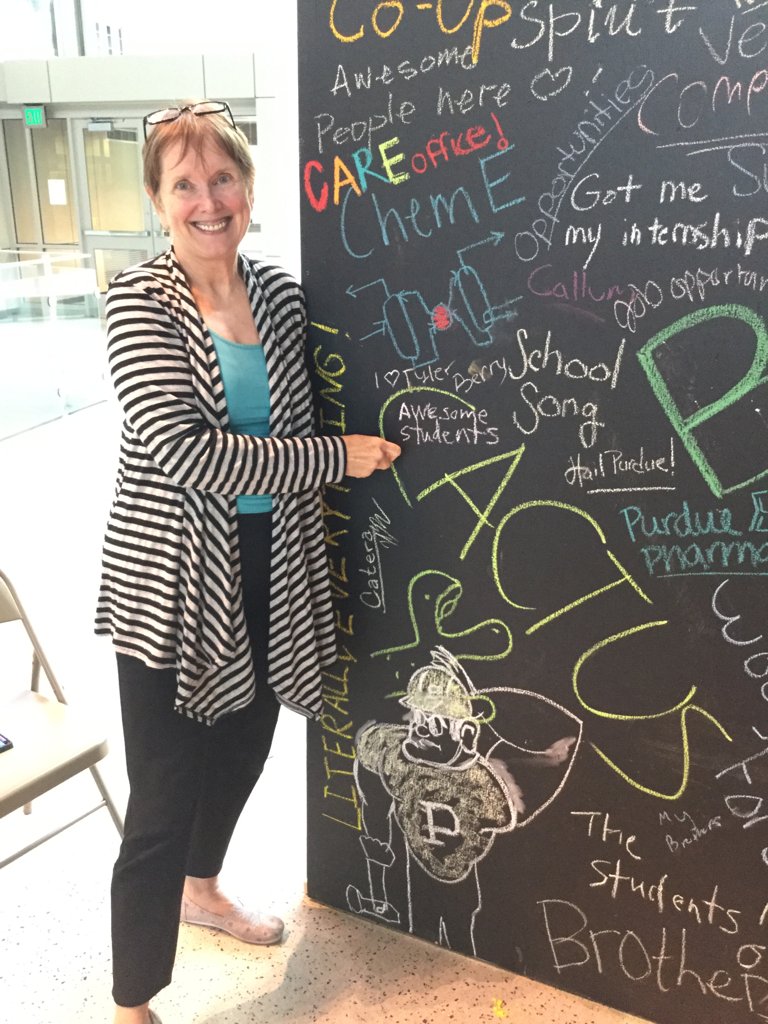 EXIT
Co-Op
Spirit
Awesome
People here
CARE office!
ChemE
opportunities
Got me
my internship
Callum
I ♡ Tyler Berry
School
Song
Hail Purdue!
Awesome
Students
CACTUS
LITERALLY EVERYTHING!
Catera
Purdue
pharma
P
My
Brothers
The
Students
Brothe